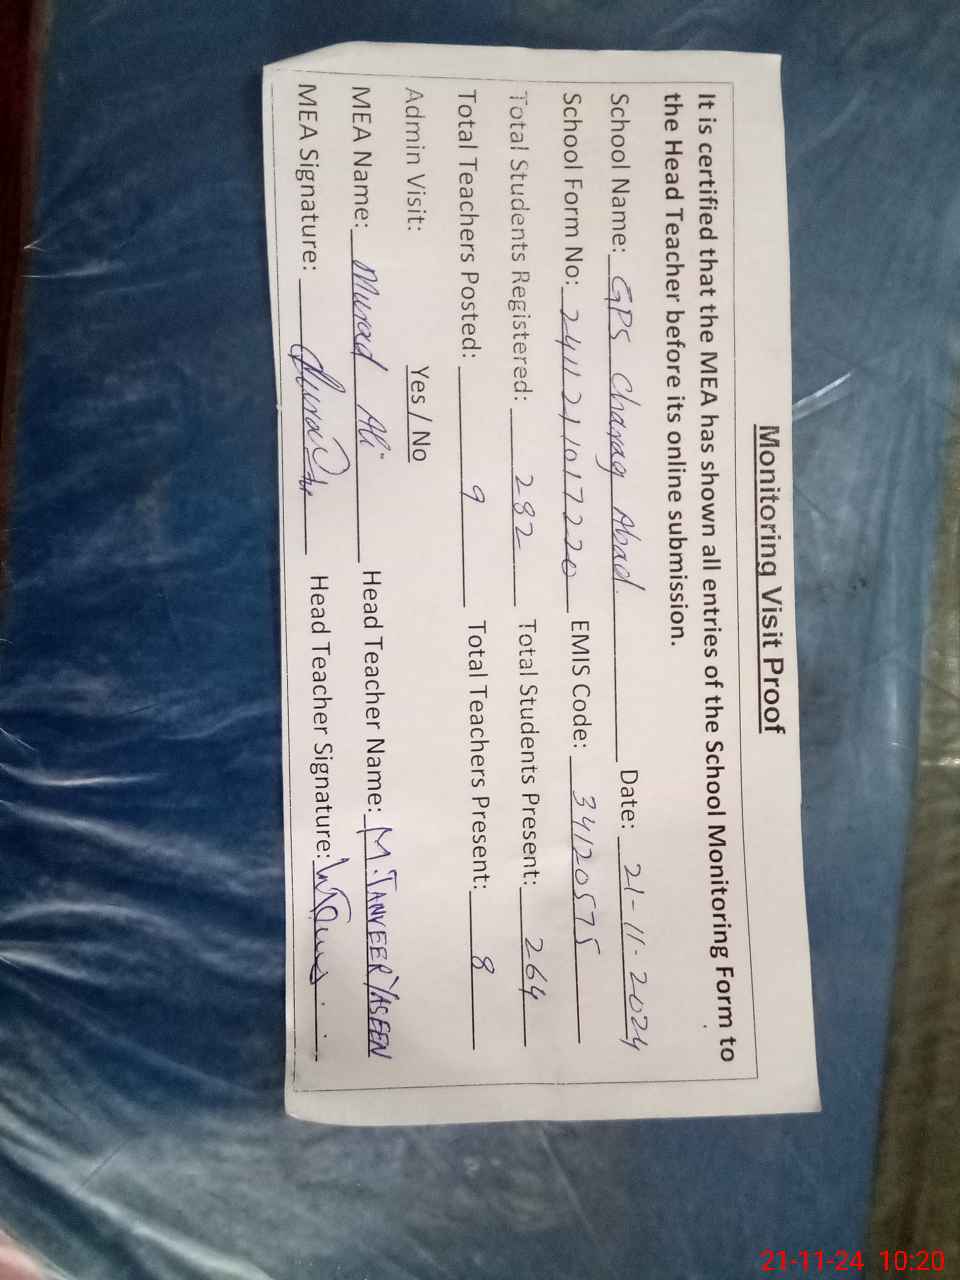 Monitoring Visit Proof
It is certified that the MEA has shown all entries of the School Monitoring Form to
the Head Teacher before its online submission.
School Name: GPS Charag Abad. Date: 21-11-2024
School Form No: 2411211017220 EMIS Code: 34120575
Total Students Registered: 282 Total Students Present: 264
Total Teachers Posted: 9 Total Teachers Present: 8
Admin Visit: Yes / No
MEA Name: Murad Ali Head Teacher Name: M.TANVEER YASEEN
MEA Signature: Head Teacher Signature:
21-11-24 10:20